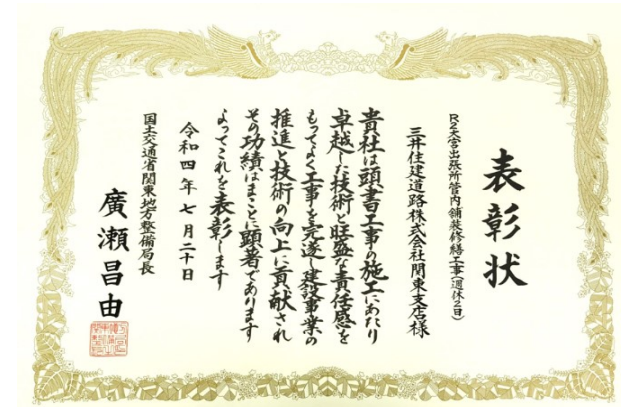 表彰状
R2大宮出張所管内舗装修繕工事(週休2日)
三井住建道路株式会社関東支店様
貴社は頭書工事の施工にあたり
卓越した技術と旺盛な責任感を
もってよく工事を完遂し建設事業の
推進と技術の向上に貢献され
その功績はまことに顕著であります
よってこれを表彰します
令和四年七月二十日
国土交通省関東地方整備局長
廣瀬昌由